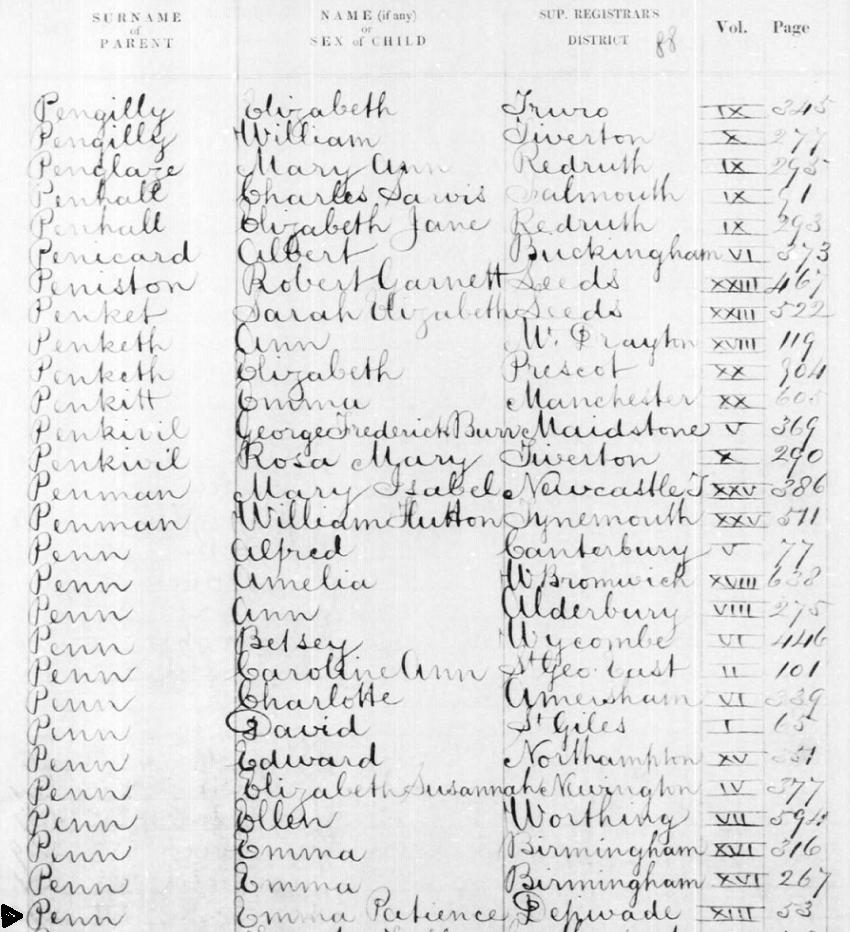 SURNAME of PARENT NAME (if any) or SEX of CHILD SUP. REGISTRAR'S DISTRICT Vol. Page
Pengilly Elizabeth Truro IX 345
Pengilly William Tiverton X 277
Penglaze Mary Ann Redruth IX 295
Penhall Charles Jarvis Falmouth IX 91
Penhall Elizabeth Jane Redruth IX 293
Penicard Albert Buckingham VI 373
Peniston Robert Garnett Leeds XXIII 467
Penket Sarah Elizabeth Leeds XXIII 522
Penketh Ann M. Drayton XVIII 119
Penketh Elizabeth Prescot XX 904
Penkitt Emma Manchester XX 605
Penkivil George Frederick Burn Maidstone V 369
Penkivil Rosa Mary Tiverton X 290
Penman Mary Isabel Newcastle T XXV 386
Penman William Hutton Tynemouth XXV 511
Penn Alfred Canterbury V 77
Penn Amelia W Bromwich XVIII 638
Penn Ann Alderbury VIII 275
Penn Betsey Wycombe VI 446
Penn Caroline Ann St Geo. East II 101
Penn Charlotte Amersham VI 339
Penn David St Giles I 65
Penn Edward Northampton XV 351
Penn Elizabeth Susannah Newington IV 377
Penn Ellen Worthing VII 594
Penn Emma Birmingham XVI 316
Penn Emma Birmingham XVI 267
Penn Emma Patience Depwade XIII 53